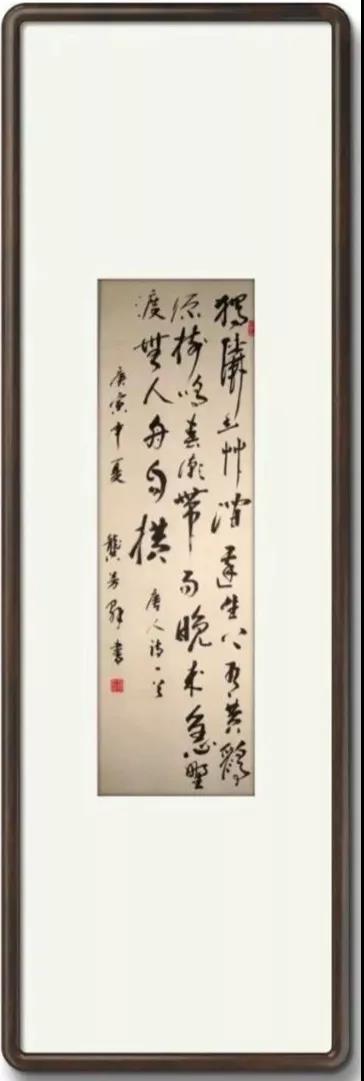 獨憐幽艸澗邊生上有黄鸝
深樹鳴春潮帶雨晚来急野
渡無人舟自横 唐人诗一首
庚寅中夏 龔 書